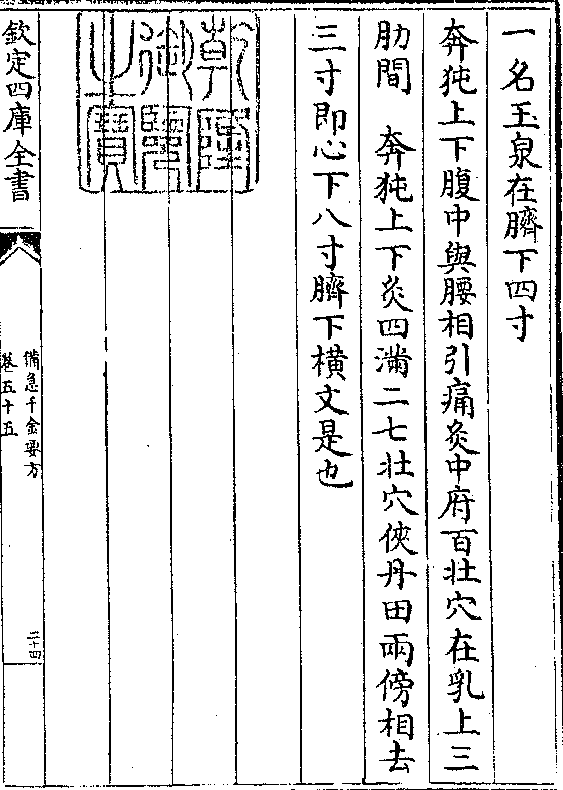 一名玉泉在臍下四寸
奔㹠上下腹中與腰相引痛灸中府百壯穴在乳上三
肋間　奔㹠上下灸四滿二七壯穴俠丹田兩傍相去
三寸即心下八寸臍下橫文是也
乾隆御覽之寶
欽定四庫全書
備急千金要方
卷五十五
二十四